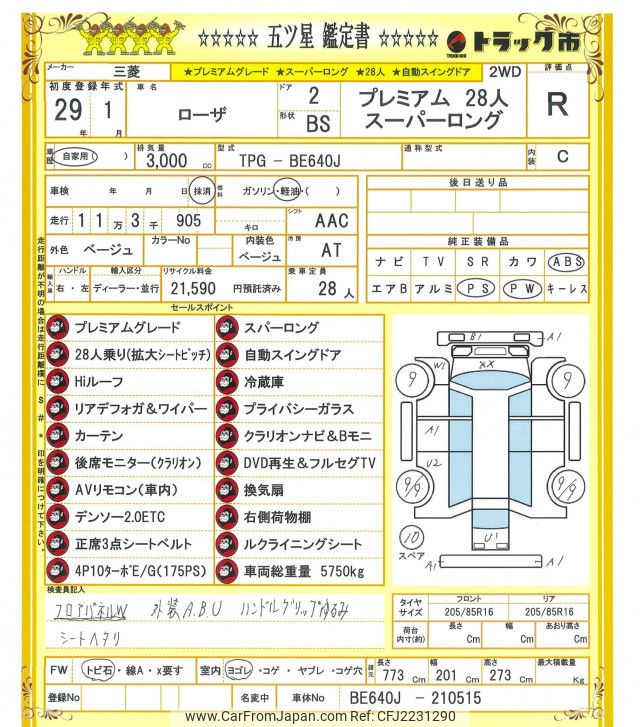 ☆☆☆☆☆ 五ツ星 鑑定書 ☆☆☆☆☆ トラック市
TRUCK-ICHI
メーカー 三菱 ★プレミアムグレード ★スーパーロング ★28人 ★自動スイングドア 2WD 評価点
初度登録年式 車名 ドア 2 プレミアム 28人 R
29年 1月 ローザ 形状 BS スーパーロング
車歴 自家用( ) 排気量 3,000 cc 型式 TPG - BE640J 通称型式 内装 C
車検 年 月 日 抹消 燃料 ガソリン・軽油・( ) 後日送り品
走行 11万3千905 キロ シフト AAC
外色 ベージュ カラーNo 内装色 ベージュ 冷房 AT 純正装備品
ナビ TV SR カワ ABS
輸入車 ハンドル 右・左 輸入区分 ディーラー・並行 リサイクル料金 21,590 円預託済み 乗車定員 28人
エアB アルミ PS PW キーレス
走行距離が不明の場合は走行距離欄に S # * 印を明確につけて下さい。
セールスポイント
プレミアムグレード スパーロング
28人乗り(拡大シートピッチ) 自動スイングドア
Hiルーフ 冷蔵庫
リアデフォガ＆ワイパー プライバシーガラス
カーテン クラリオンナビ＆Bモニ
後席モニター(クラリオン) DVD再生＆フルセグTV
AVリモコン(車内) 換気扇
デンソー2.0ETC 右側荷物棚
正席3点シートベルト ルクライニングシート
4P10ターボE/G(175PS) 車両総重量 5750kg
B1 A1
W1 XX
9 9
A1
U2
9/9 9/9
10 U1
スペア A1 A1
検査員記入
フロアパネルW 外装A.B.U ハンドルグリップゆるみ
シートヘタリ
タイヤサイズ フロント 205/85R16 リア 205/85R16
荷台内寸(約) 長さ Cm 幅 Cm あおり高さ Cm
FW トビ石・線A・×要す 室内 ヨゴレ・コゲ・ヤブレ・コゲ穴 諸元 長さ 773 Cm 幅 201 Cm 高さ 273 Cm 最大積載量 Kg
登録No 名変中 車体No BE640J - 210515
www.CarFromJapan.com Ref: CFJ2231290